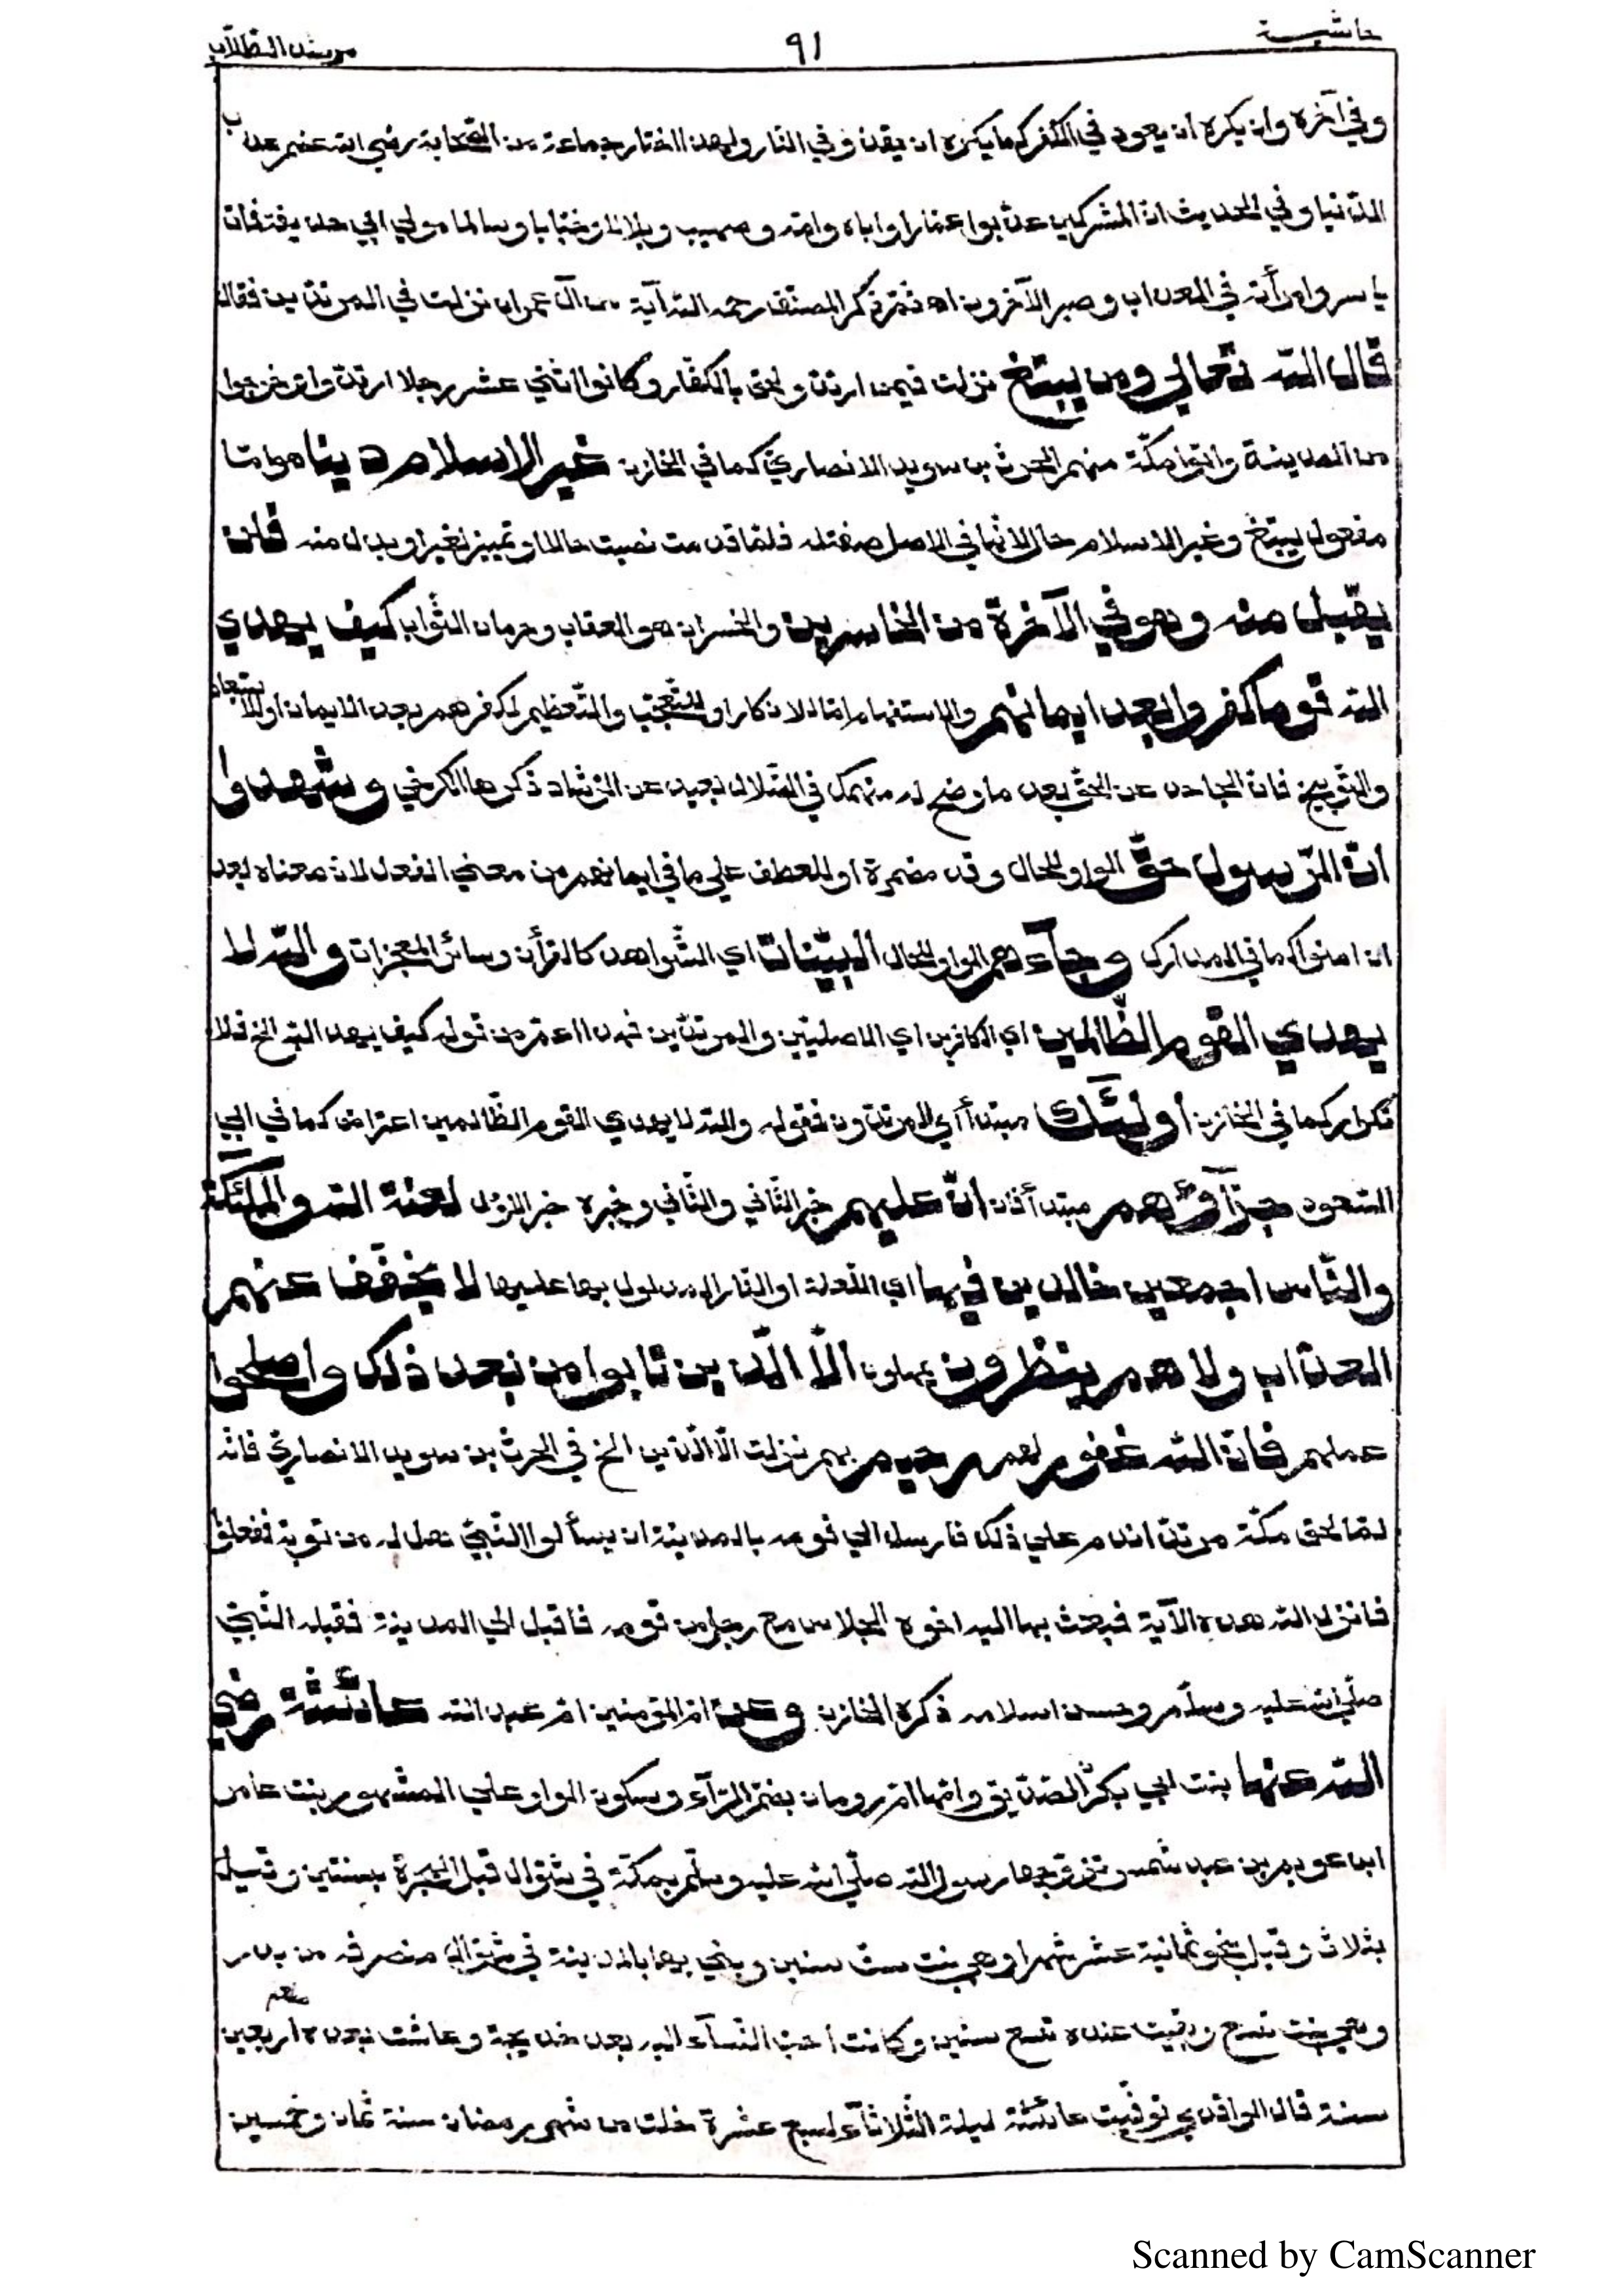 حاشية ٩١ مرشد الطلاب
وفي آخره وان يكره ان يعود في الكفر كما يكره ان يقذف في النار ولهذا اختار جماعة من الصحابة رضي الله عنهم عذاب
الدنيا وفي الحديث ان المشركين عذبوا عمارا واباه وامه وصهيب وبلالا وخبابا وسالما مولي ابي حذيفة فمات
ياسر وامرأته في العذاب وصبر الآخرون اه ثم ذكر المصنف رحمه الله آية من آل عمران نزلت في المرتدين فقال
قال الله تعالي ومن يبتغ نزلت فيمن ارتد ولحق بالكفار وكانوا اثني عشر رجلا ارتدوا وخرجوا
من المدينة واتوا مكة منهم الحرث بن سويد الانصاري كما في الخازن غير الاسلام دينا هو اما
مفعول يبتغ وغير الاسلام حال لانها في الاصل صفة له فلما قدمت نصبت حالا او تمييز لغير او بدل منه فلن
يقبل منه وهو في الآخرة من الخاسرين والخسران هو العقاب وحرمان الثواب كيف يهدي
الله قوما كفروا بعد ايمانهم والاستفهام اما للانكار او للتعجب والتعظيم لكفرهم بعد الايمان او للاستبعاد
والتوبيخ فان الجاحد عن الحق بعد ما وضح له منهمك في الضلال بعيد عن الرشاد ذكرها الكرخي وشهدوا
ان الرسول حق الواو للحال وقد مضمرة او للعطف علي ما في ايمانهم من معني الفعل لان معناه بعد
ان امنوا كما في المدارك وجآءهم الواو للحال البينات اي الشواهد كالقرأن وسائر المعجزات والله لا
يهدي القوم الظالمين اي الكافرين اي الاصليين والمرتدين فهذا اعم من قوله كيف يهد الله الخ فلا
تكرار كما في الخازن أولٓئك مبتدأ اي المرتدون فقوله والله لا يهدي القوم الظالمين اعتراض كما في ابي
السعود جزآؤهم مبتدأ ثان ان عليهم خبر الثاني والثاني وخبره خبر الاول لعنة الله والملٓئكة
والناس اجمعين خالدين فيها اي اللعنة او النار المدلول بها عليها لا يخفف عنهم
العذاب ولا هم ينظرون يمهلون الا الذين تابوا من بعد ذلك واصلحوا
عملهم فان الله غفور لهم رحيم بهم نزلت الا الذين الخ في الحرث بن سويد الانصاري فانه
لما لحق مكة مرتدا ندم علي ذلك فارسل الي قومه بالمدينة ان يسألوا النبي هل له من توبة ففعلوا
فانزل الله هذه الآية فبعث بها اليه اخوه الجلاس مع رجل من قومه فأقبل الي المدينة فقبله النبي
صلي الله عليه وسلم وحسن اسلامه ذكره الخازن وعن ام المؤمنين ام عبد الله عائشة رضي
الله عنها بنت ابي بكر الصديق وامها ام رومان بضم الرآء وسكون الواو علي المشهور بنت عامر
ابن عويمر بن عبد شمس وتزوجها رسول الله صلي الله عليه وسلم بمكة في شوال قبل الهجرة بسنتين وقيل
بثلاث وقيل بنحو ثمانية عشر شهرا وهي بنت ست سنين وبني بها بالمدينة في شوال منصرفه من بدر
وهي بنت تسع وبقيت عنده تسع سنين وكانت أحب النسآء اليه بعد خديجة وعاشت بعده صلعم اربعين
سنة قال الواقدي توفيت عائشة ليلة الثلاثآء لسبع عشرة خلت من شهر رمضان سنة ثمان وخمسين
Scanned by CamScanner